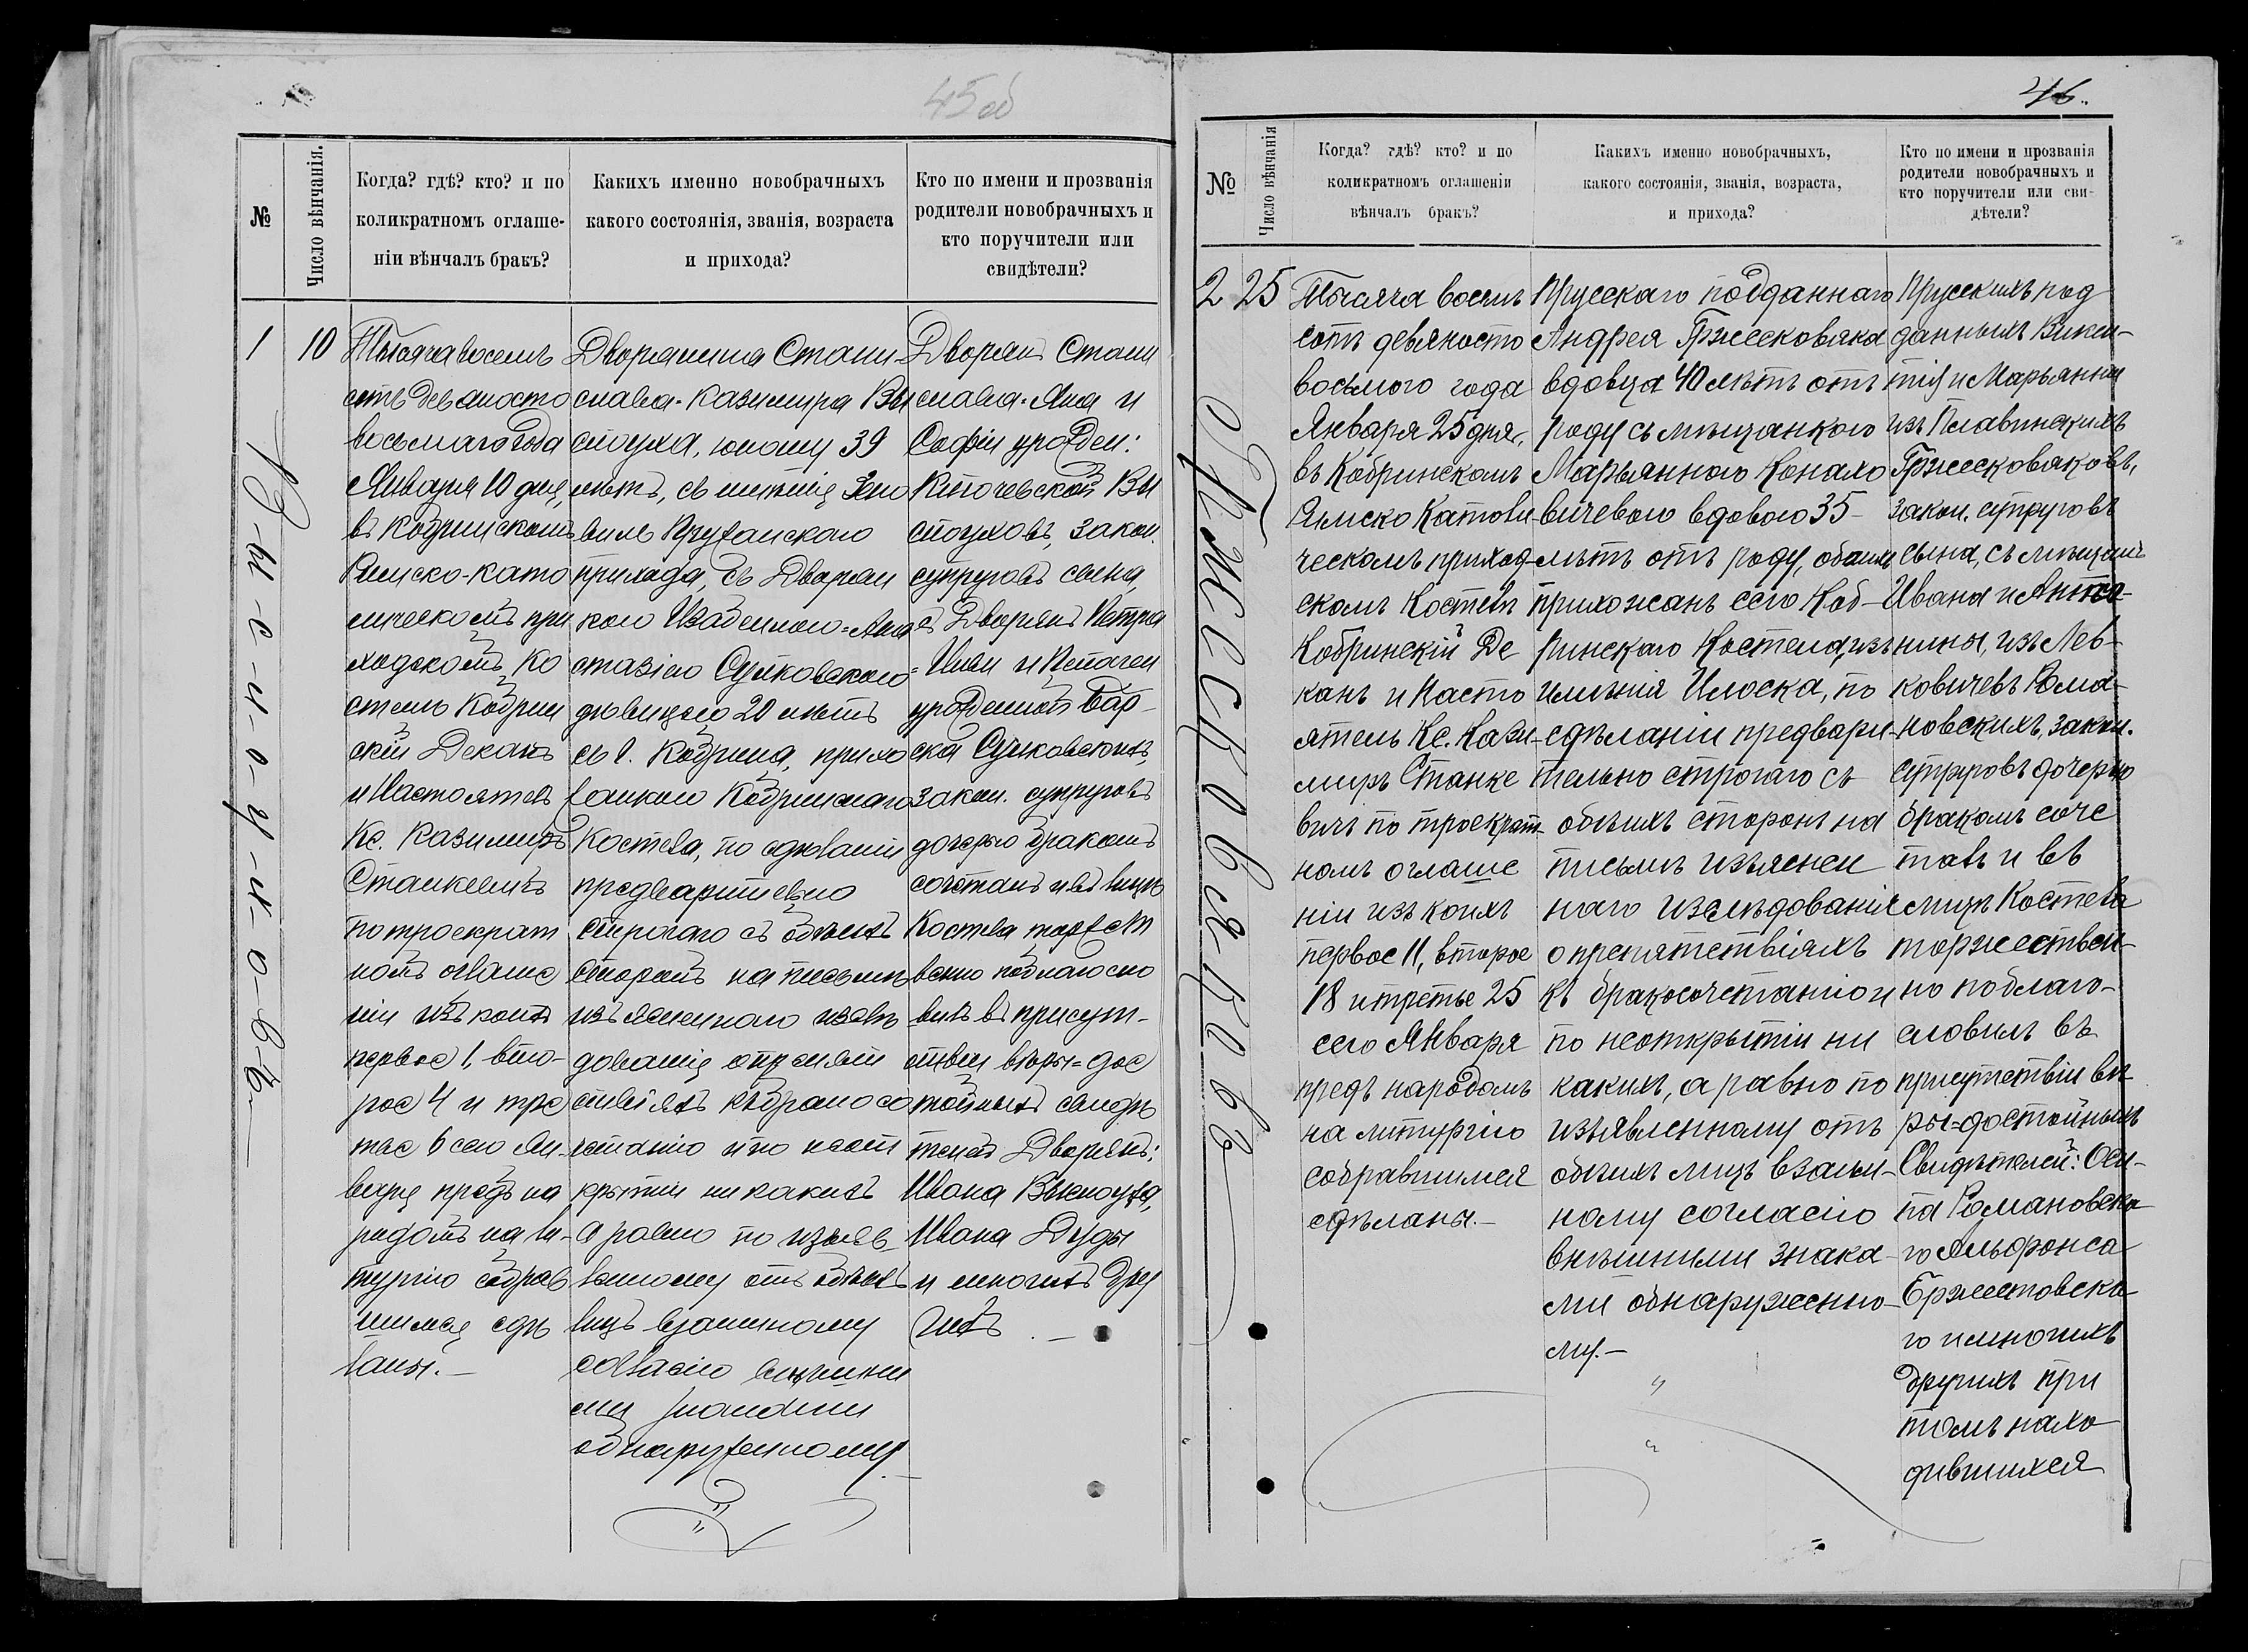 45 об
№
Число вѣнчанія.
Когда? гдѣ? кто? и по
коликратномъ оглаше-
ніи вѣнчалъ бракъ?
Какихъ именно новобрачныхъ
какого состоянія, званія, возраста
и прихода?
Кто по имени и прозванія
родители новобрачныхъ и
кто поручители или
свидѣтели?
1
В-ы-с-л-о-у-х-о-в-ъ
10
Тысяча восемь
сотъ девяносто
восьмаго года
Января 10 дня,
въ Кобринскомъ
Римско-като
лическомъ при
ходскомъ Ко
стелѣ Кобрин
скій Деканъ
и Настоятель
Кс. Казимиръ
Станкевичъ
по троекрат
номъ оглаше
ніи изъ коихъ
первое 1, вто-
рое 4 и тре
тье 6 сего Ян-
варя предъ на
родомъ на ли-
тургію собрав
шимся сдѣ
ланы.-
Дворянина Стани-
слава-Казимира Вы
слоуха, юношу 39
лѣтъ, съ имѣнія
виль Пружанскаго
прихода, съ Дворян
кою Изабеллою-Ана
стазіею Сулковскою
дѣвицею 20 лѣтъ
съ г. Кобрина, прихо
жанкою Кобринскаго
Костела, по сдѣланіи
предварительно
строгаго съ обѣихъ
сторонъ на письмѣ
изъясненнаго изслѣ
дованія о препят
ствіяхъ къ бракосо
четанію и по неот
крытіи никакихъ
а равно по изъяв-
ленному отъ обѣихъ
лицъ взаимному
согласію внѣшни
ми знаками
обнаруженному.
Дворянъ Стани
слава-Яна и
Софіи урожден:
Ключевской Вы
слоуховъ, закон.
супруговъ сына,
съ Дворянъ Петра
и Пелагеи
урожденной Бар-
ска Сулковскихъ,
закон. супруговъ
дочерью бракомъ
сочеталъ и въ лицѣ
Костела торжест
венно поблагосло
вилъ въ присут-
ствіи вѣры-дос
тойныхъ свидѣ
телей Дворянъ:
Ивана Выслоуха,
Ивана Дуды
и многихъ дру
гихъ.-
46.
№
Число вѣнчанія
Когда? гдѣ? кто? и по
коликратномъ оглашеніи
вѣнчалъ бракъ?
Какихъ именно новобрачныхъ,
какого состоянія, званія, возраста,
и прихода?
Кто по имени и прозванія
родители новобрачныхъ и
кто поручители или сви-
дѣтели?
2
Гржесковяковъ
25
Тысяча восемь
сотъ девяносто
восьмого года
Января 25 дня,
въ Кобринскомъ
Римско Католи-
ческомъ приход-
скомъ Костелѣ
Кобринскій Де
канъ и Насто
ятель Кс. Кази-
миръ Станке
вичъ по троекрат-
номъ оглаше
ніи изъ коихъ
первое 11, второе
18 и третье 25
сего Января
предъ народомъ
на литургію
собравшимся
сдѣланы.-
Прусскаго подданнаго
Андрея Гржесковяка
вдовца 40 лѣтъ отъ
роду съ мѣщанкою
Марьянною Конахо
вичевою вдовою 35-
лѣтъ отъ роду, обоихъ
прихожанъ сего Коб-
ринскаго Костела, изъ
имѣнія Илоска, по
сдѣланіи предвари-
тельно строгаго съ
обѣихъ сторонъ на
письмѣ изъяснен
наго изслѣдованія
о препятствіяхъ
къ бракосочетанію и
по неоткрытіи ни
какихъ, а равно по
изъявленному отъ
обѣихъ лицъ взаим-
ному согласію
внѣшними знака-
ми обнаруженно-
му.-
Прусскихъ под
данныхъ Викен-
тія и Марьянны
изъ Плавинскихъ
Гржесковяковъ,
закон. супруговъ
сына, съ мѣщанъ
Ивана и Анто-
нины, изъ Лев-
ковичевъ Рома-
новскихъ, закон.
супруговъ дочерью
бракомъ соче
талъ и въ
лицѣ Костела
торжествен-
но поблаго-
словилъ въ
присутствіи вѣ-
ры-достойныхъ
Свидѣтелей: Оси-
па Романовска
го Альфонса
Бржестовска
го и многихъ
другихъ при
томъ нахо
дившихся